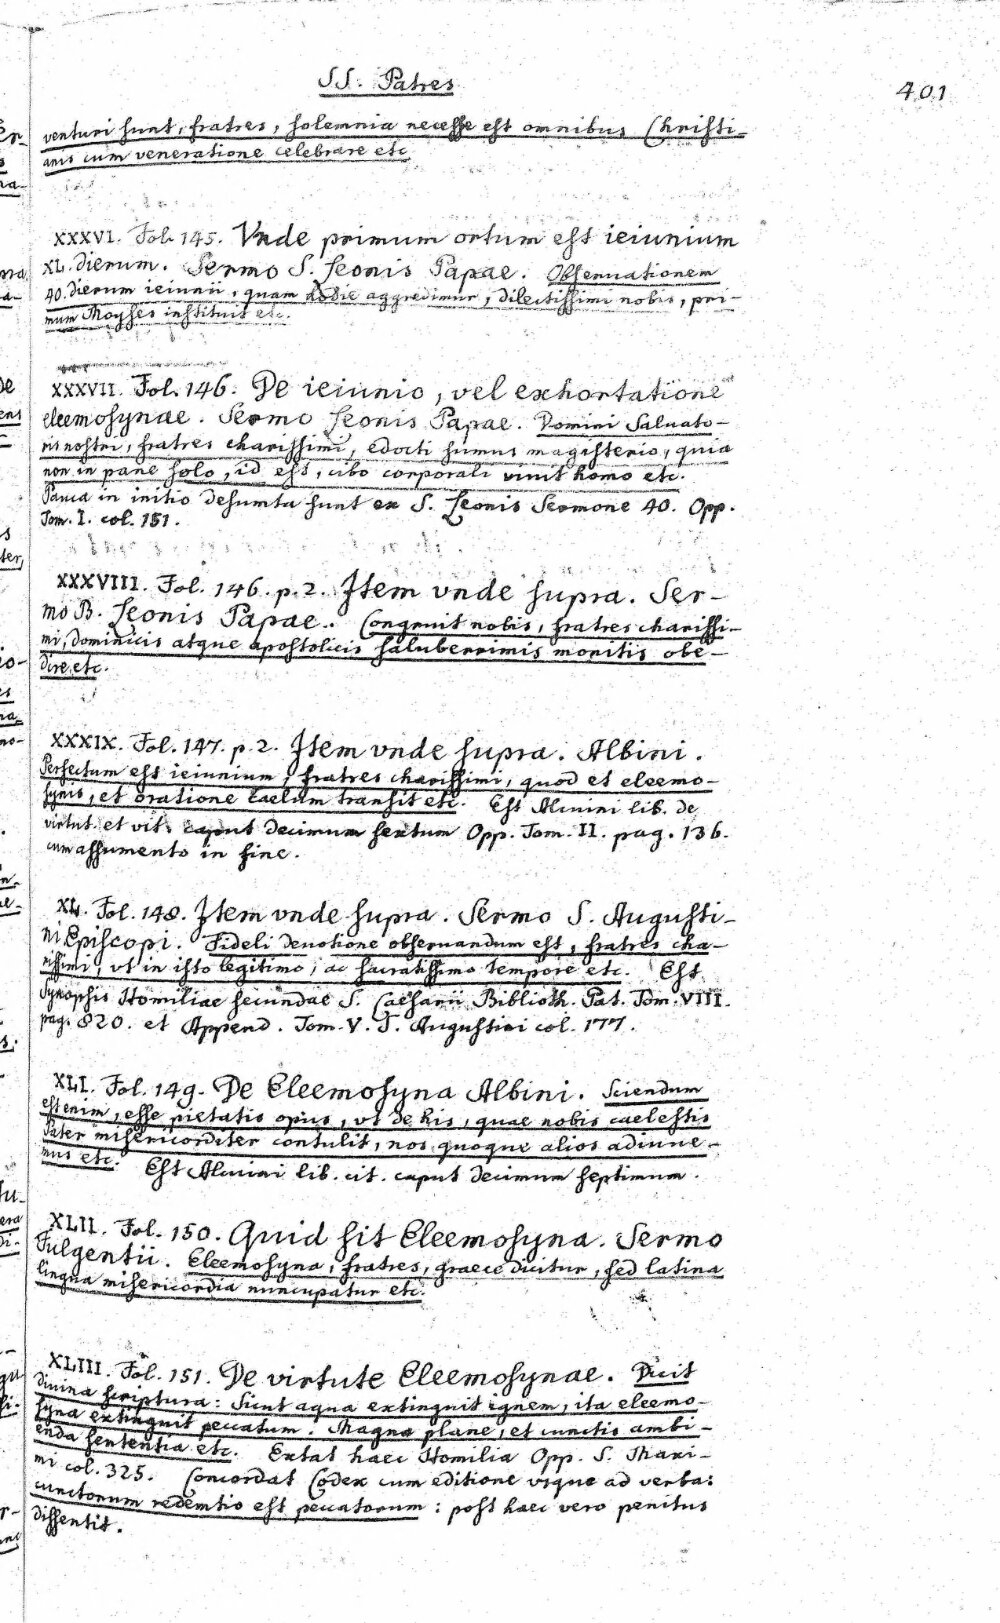 SS. Patres
401
venturi sunt, fratres, solemnia necesse est omnibus Christi-
anis cum veneratione celebrare etc
XXXVI. Fol. 145. Vnde primum ortum est ieiunium
XL. dierum. Sermo S. Leonis Papae. Obseruationem
40. dierum ieiunii, quam hodie aggredimur, dilectissimi nobis, pri-
mum Moyses instituit etc.
XXXVII. Fol. 146. De ieiunio, vel exhortatione
eleemosynae. Sermo Leonis Papae. Domini Saluato-
ris nostri, fratres charissimi, edocti sumus magisterio, quia
non in pane solo, id est, cibo corporali viuit homo etc.
Pauca in initio desumta sunt ex S. Leonis Sermone 40. Opp.
Tom. I. col. 151.
XXXVIII. Fol. 146. p. 2. Item vnde supra. Ser-
mo B. Leonis Papae. Congruit nobis, fratres charissi-
mi, dominicis atque apostolicis saluberrimis monitis obe-
dire etc.
XXXIX. Fol. 147. p. 2. Item vnde supra. Albini.
Perfectum est ieiunium, fratres charissimi, quod et eleemo-
synis, et oratione caelum transit etc. Est Alcuini lib. de
virtut. et vit. caput decimum sextum Opp. Tom. II. pag. 136.
cum assumento in fine.
XL. Fol. 148. Item vnde supra. Sermo S. Augusti-
ni Episcopi. Fideli deuotione obseruandum est, fratres cha-
rissimi, vt in isto legitimo, ac sacratissimo tempore etc. Est
Synopsis Homiliae secundae S. Caesarii Biblioth. Pat. Tom. VIII.
pag. 820. et Append. Tom. V. S. Augustini col. 177.
XLI. Fol. 149. De Eleemosyna Albini. Sciendum
est enim, esse pietatis opus, vt de his, quae nobis caelestis
Pater misericorditer contulit, nos quoque alios adiuue-
mus etc. Est Alcuini lib. cit. caput decimum septimum.
XLII. Fol. 150. Quid sit Eleemosyna. Sermo
Fulgentii. Eleemosyna, fratres, graece dicitur, sed latina
lingua misericordia nuncupatur etc.
XLIII. Fol. 151. De virtute Eleemosynae. Dicit
diuina scriptura: Sicut aqua extinguit ignem, ita eleemo-
syna extinguit peccatum. Magna plane, et cunctis ambi-
enda sententia etc. Extat haec Homilia Opp. S. Maxi-
mi col. 325. Concordat Codex cum editione vsque ad verba:
cunctorum redemtio est peccatorum: post haec vero penitus
dissentit.